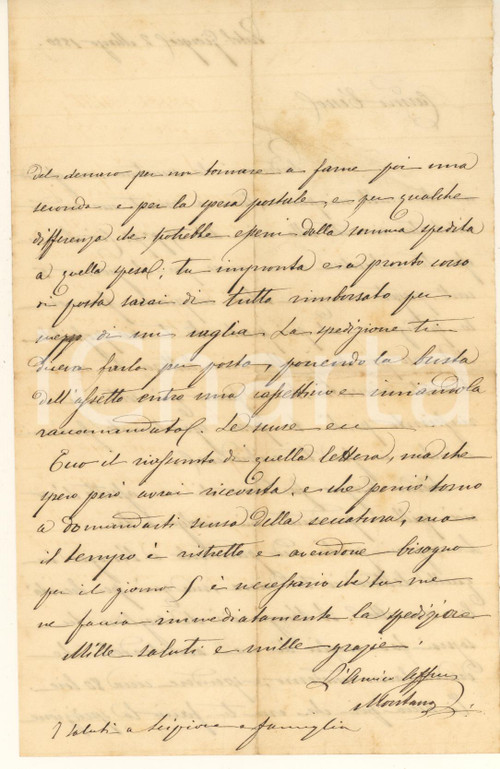 del denaro per non tornare a farne poi una
seconda e per la spesa postale, e per qualche
differenza che potrebbe esservi dalla somma spedita
a quella spesa; tu impronta e a pronto corso
di posta sarai di tutto rimborsato per
mezzo di un vaglia. La spedizione ti
dicevo farla per posta, ponendo la busta
dell'oggetto entro una cassettina e inviandola
raccomandata. Le scuse ecc
Ecco il riassunto di quella lettera, ma che
spero però avrai ricevuta, e che perciò torno
a domandarti scusa della seccatura, ma
il tempo è ristretto e avendone bisogno
per il giorno è necessario che tu me
ne faccia immediatamente la spedizione
Mille saluti e mille grazie.
L'Amico Affmo
I saluti a Scipione e famiglia
iCharta